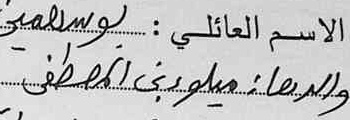 الاسم العائلي : بوسلهمي
والدها: ميلود بن المصطفى